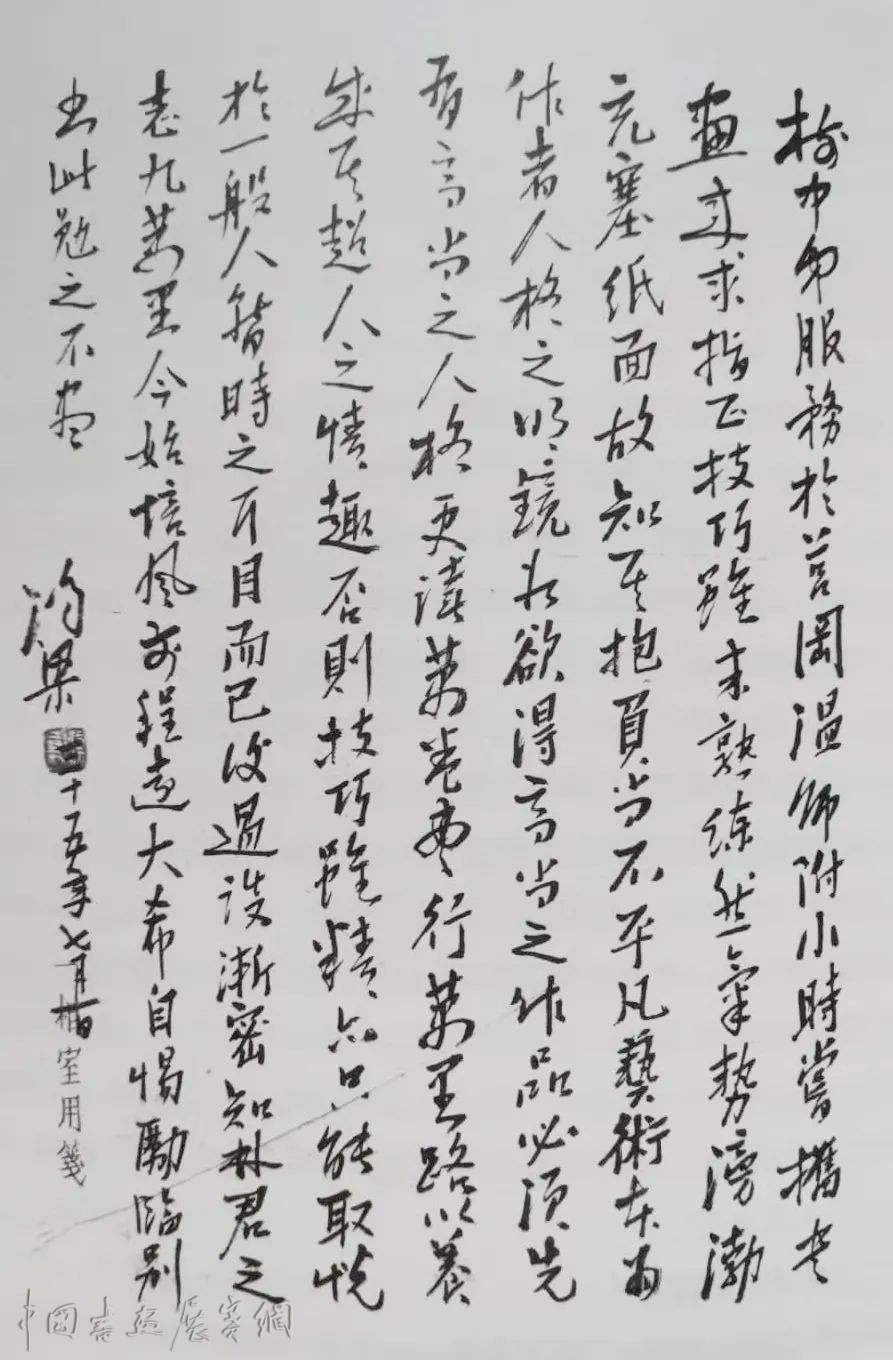 中卯服務於莒岡温師附小時嘗攜其
畫來求指正技巧雖未熟練然氣勢滂渤
充塞纸面故知其抱負當不平凡藝術本為
作者人格之明鏡如欲得高尚之作品必須先
有高尚之人格更讀萬卷書行萬里路以養
成其超人之情趣否則技巧雖精亦只能取悦
於一般人暫時之耳目而已後過談漸密知林君之
志九萬里今始培風前程遠大希自惕勵臨别
書此勉之不盡
三十五年七月
室用箋
中國書画展賽網